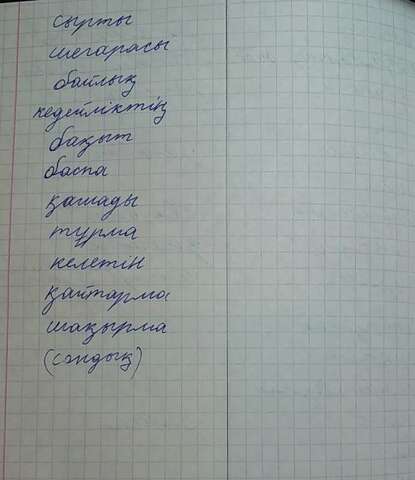 сырты
шегарасы
байлық
кедейліктің
бақыт
баспа
қашады
тұрма
келетін
қайтарма
шақырма
(сәндық)